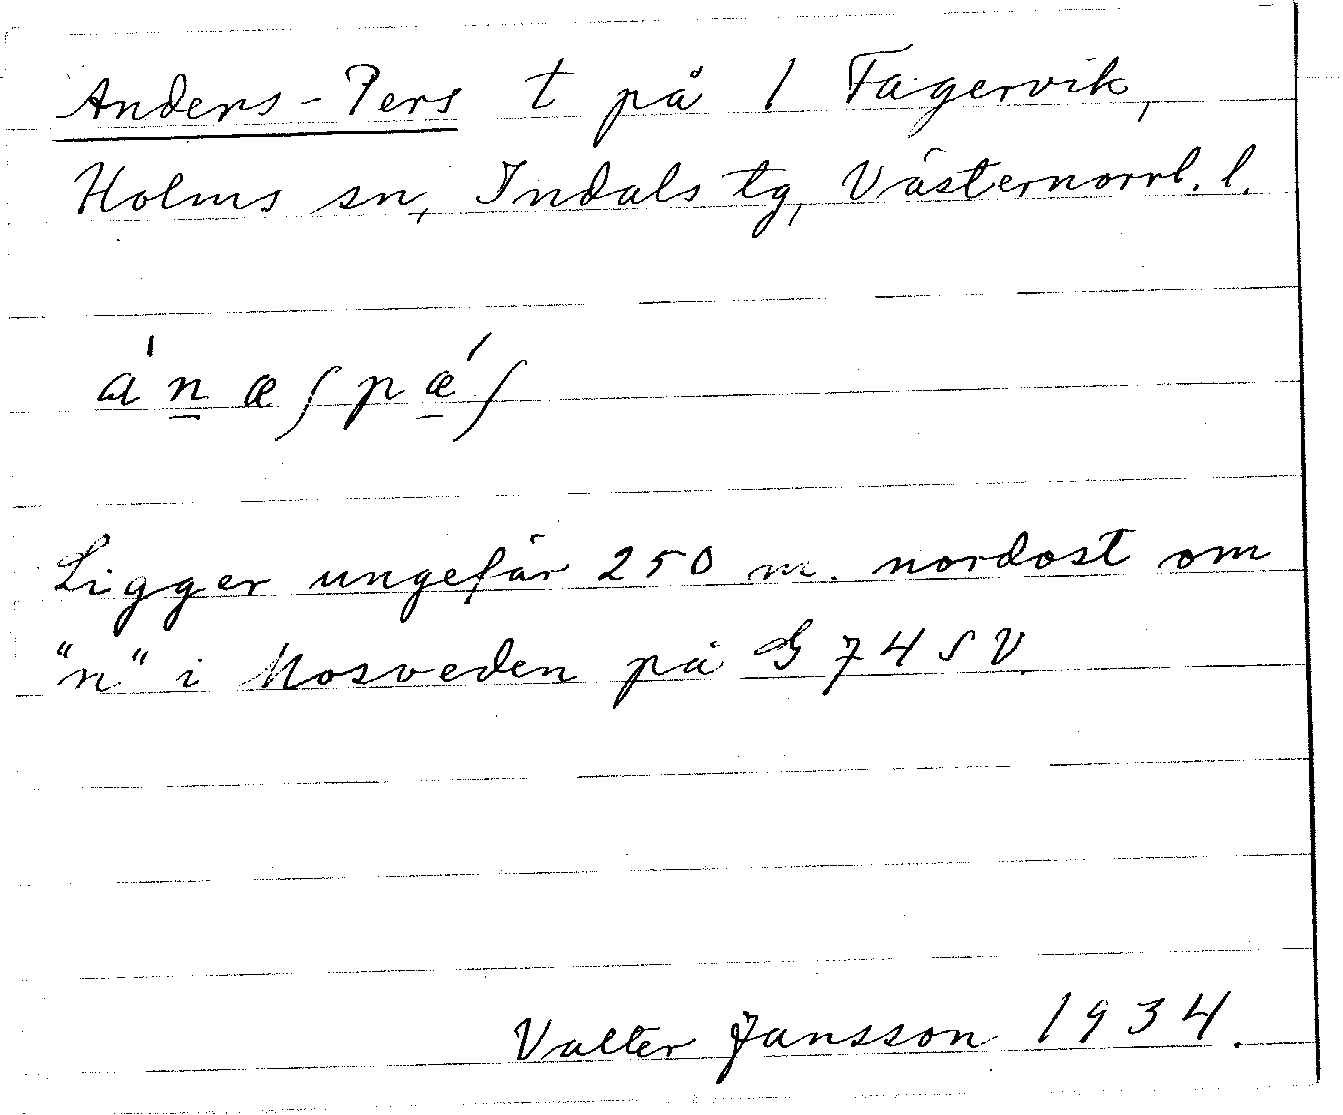 Anders-Pers t på 1 Fagervik,
Holms sn, Indals tg, Västernorrl. l.
án̲æʃpǽ̲ʃ
Ligger ungefär 250 m. nordost om
"n" i Mosveden på G 74 SV.
Valter Jansson 1934.